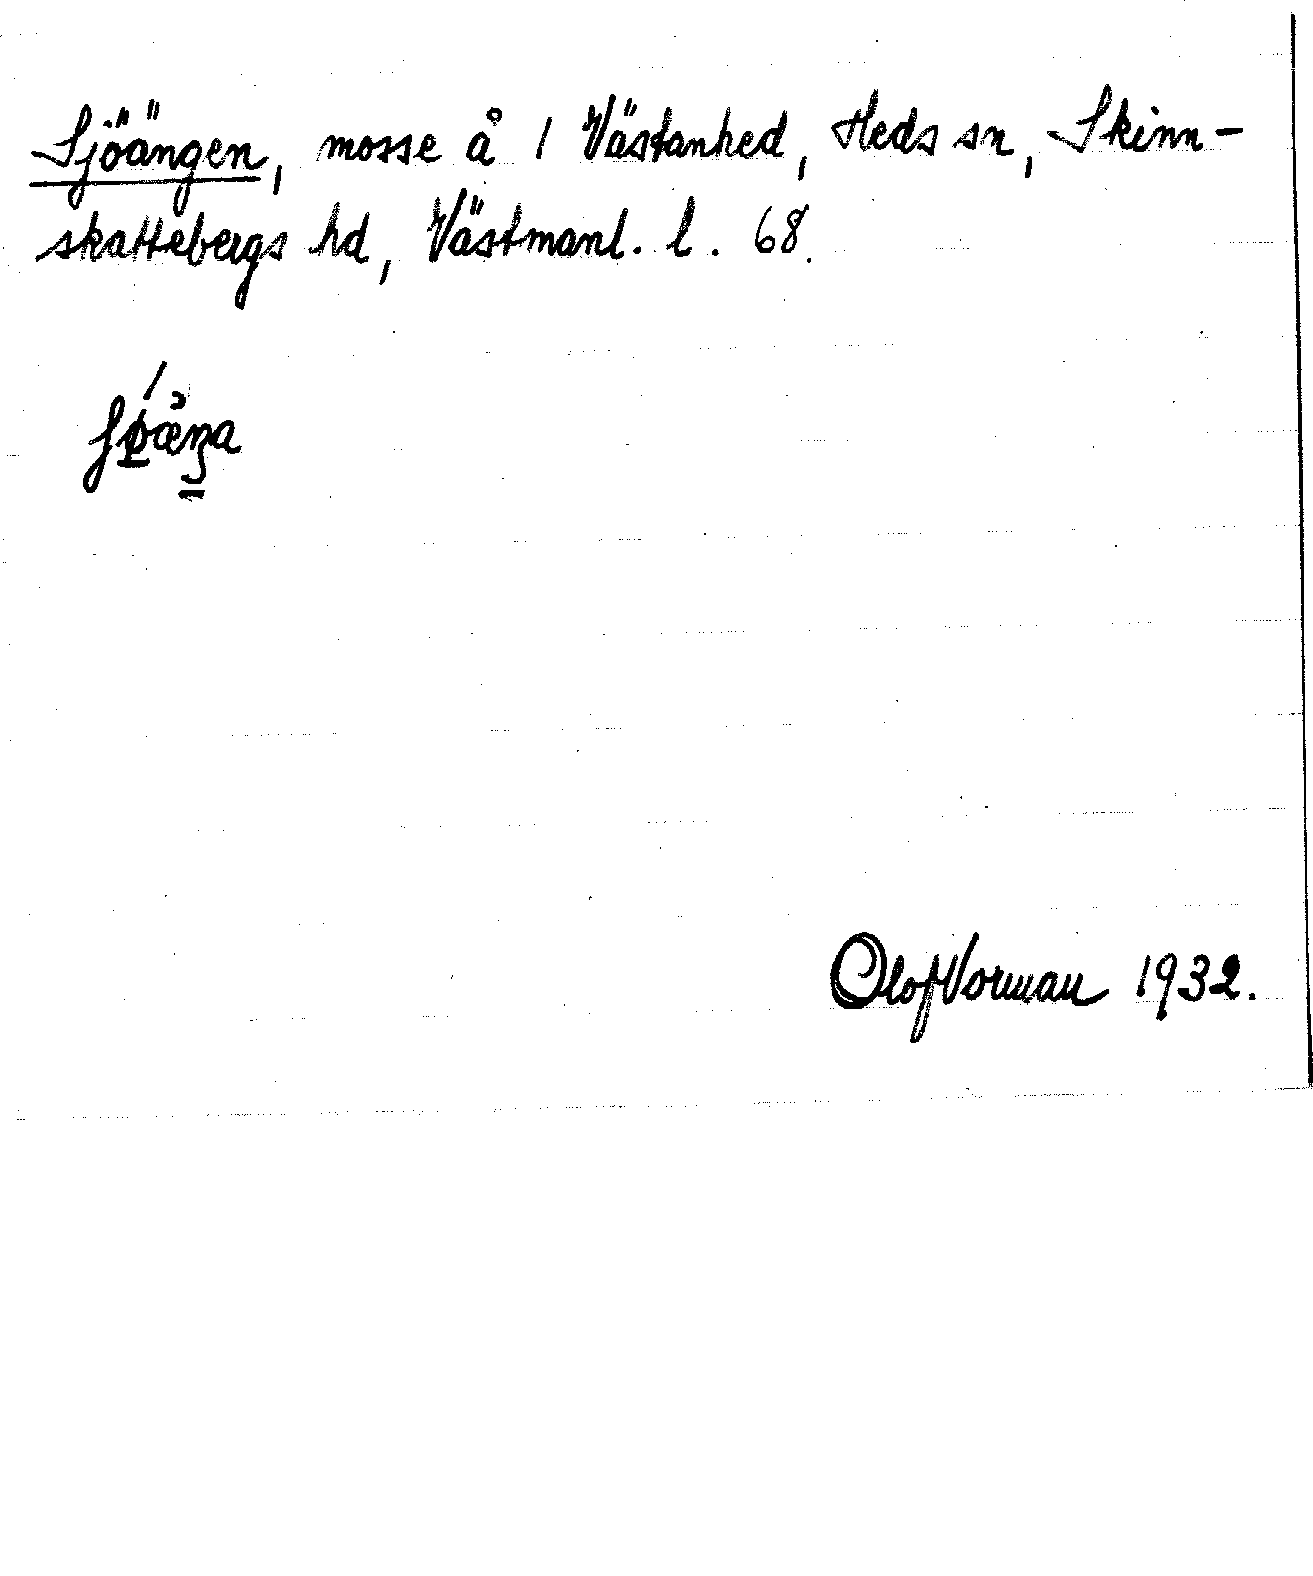 Sjöängen, mosse å 1 Västanhed, Heds sn, Skinn-
skattebergs hd, Västmanl. l. 68.
Olof Norman 1932.